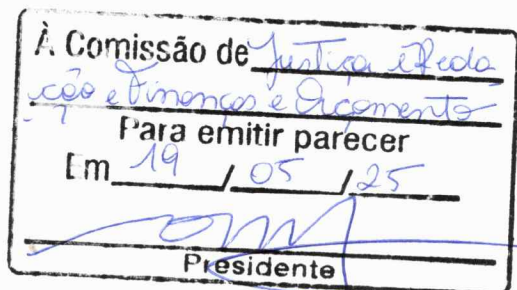 À Comissão de Justiça e Reda
ção e Finanças e Orçamento
Para emitir parecer
Em 19 / 05 / 25
Presidente